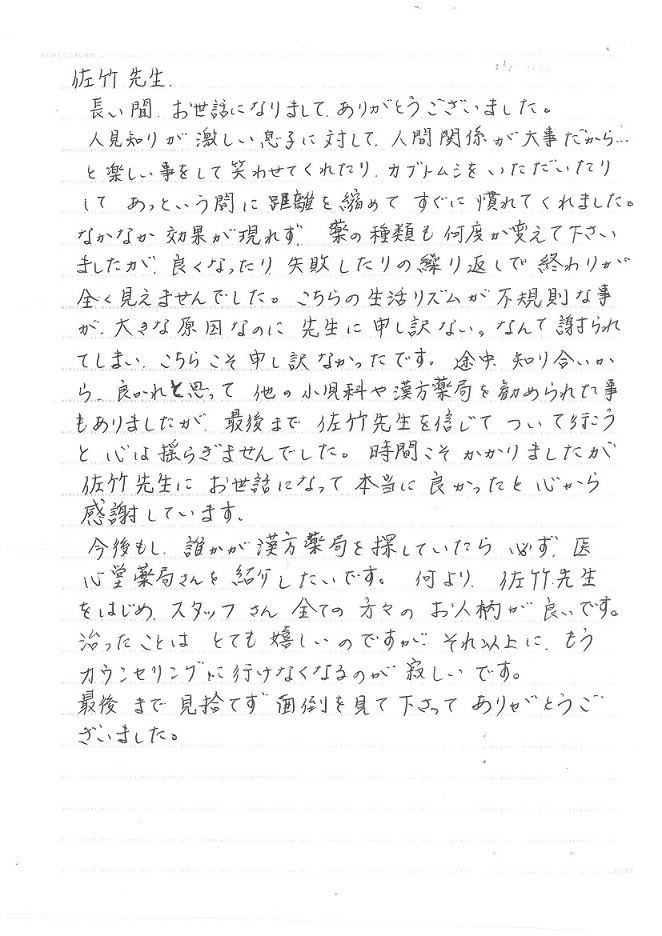 ありがとうございます
佐竹先生.
長い間、お世話になりまして、ありがとうございました。
人見知りが激しい息子に対して、人間関係が大事だから…
と楽しい事をして笑わせてくれたり、カブトムシをいただいたり
して あっという間に距離を縮めて すぐに慣れてくれました。
なかなか効果が現れず、薬の種類も何度が変えて下さい
ましたが、良くなったり 失敗したりの繰り返しで 終わりが
全く見えませんでした。こちらの生活リズムが不規則な事
が、大きな原因なのに 先生に申し訳ない。なんて謝られ
てしまい、こちらこそ申し訳なかったです。途中、知り合いか
ら、良かれと思って 他の小児科や漢方薬局を勧められた事
もありましたが、最後まで 佐竹先生を信じて ついて行こう
と 心は揺らぎませんでした。時間こそかかりましたが
佐竹先生に お世話になって 本当に良かったと心から
感謝しています。
今後もし、誰かが漢方薬局を探していたら 必ず、医
心堂薬局さんを紹介したいです。何より、佐竹先生
をはじめ、スタッフさん 全ての方々の お人柄が良いです。
治ったことは とても嬉しいのですが、それ以上に、もう
カウンセリングに行けなくなるのが 寂しいです。
最後まで見捨てず 面倒を見て下さって ありがとうご
ざいました。